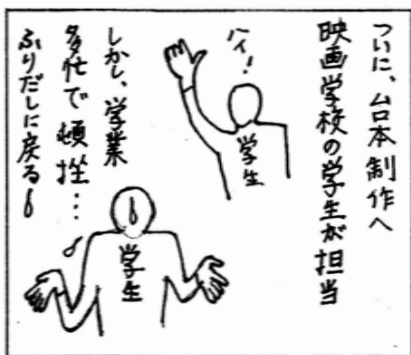 ついに、台本制作へ
映画学校の学生が担当
ハイ!
学生
しかし、学業
多忙で頓挫…
ふりだしに戻る
学生